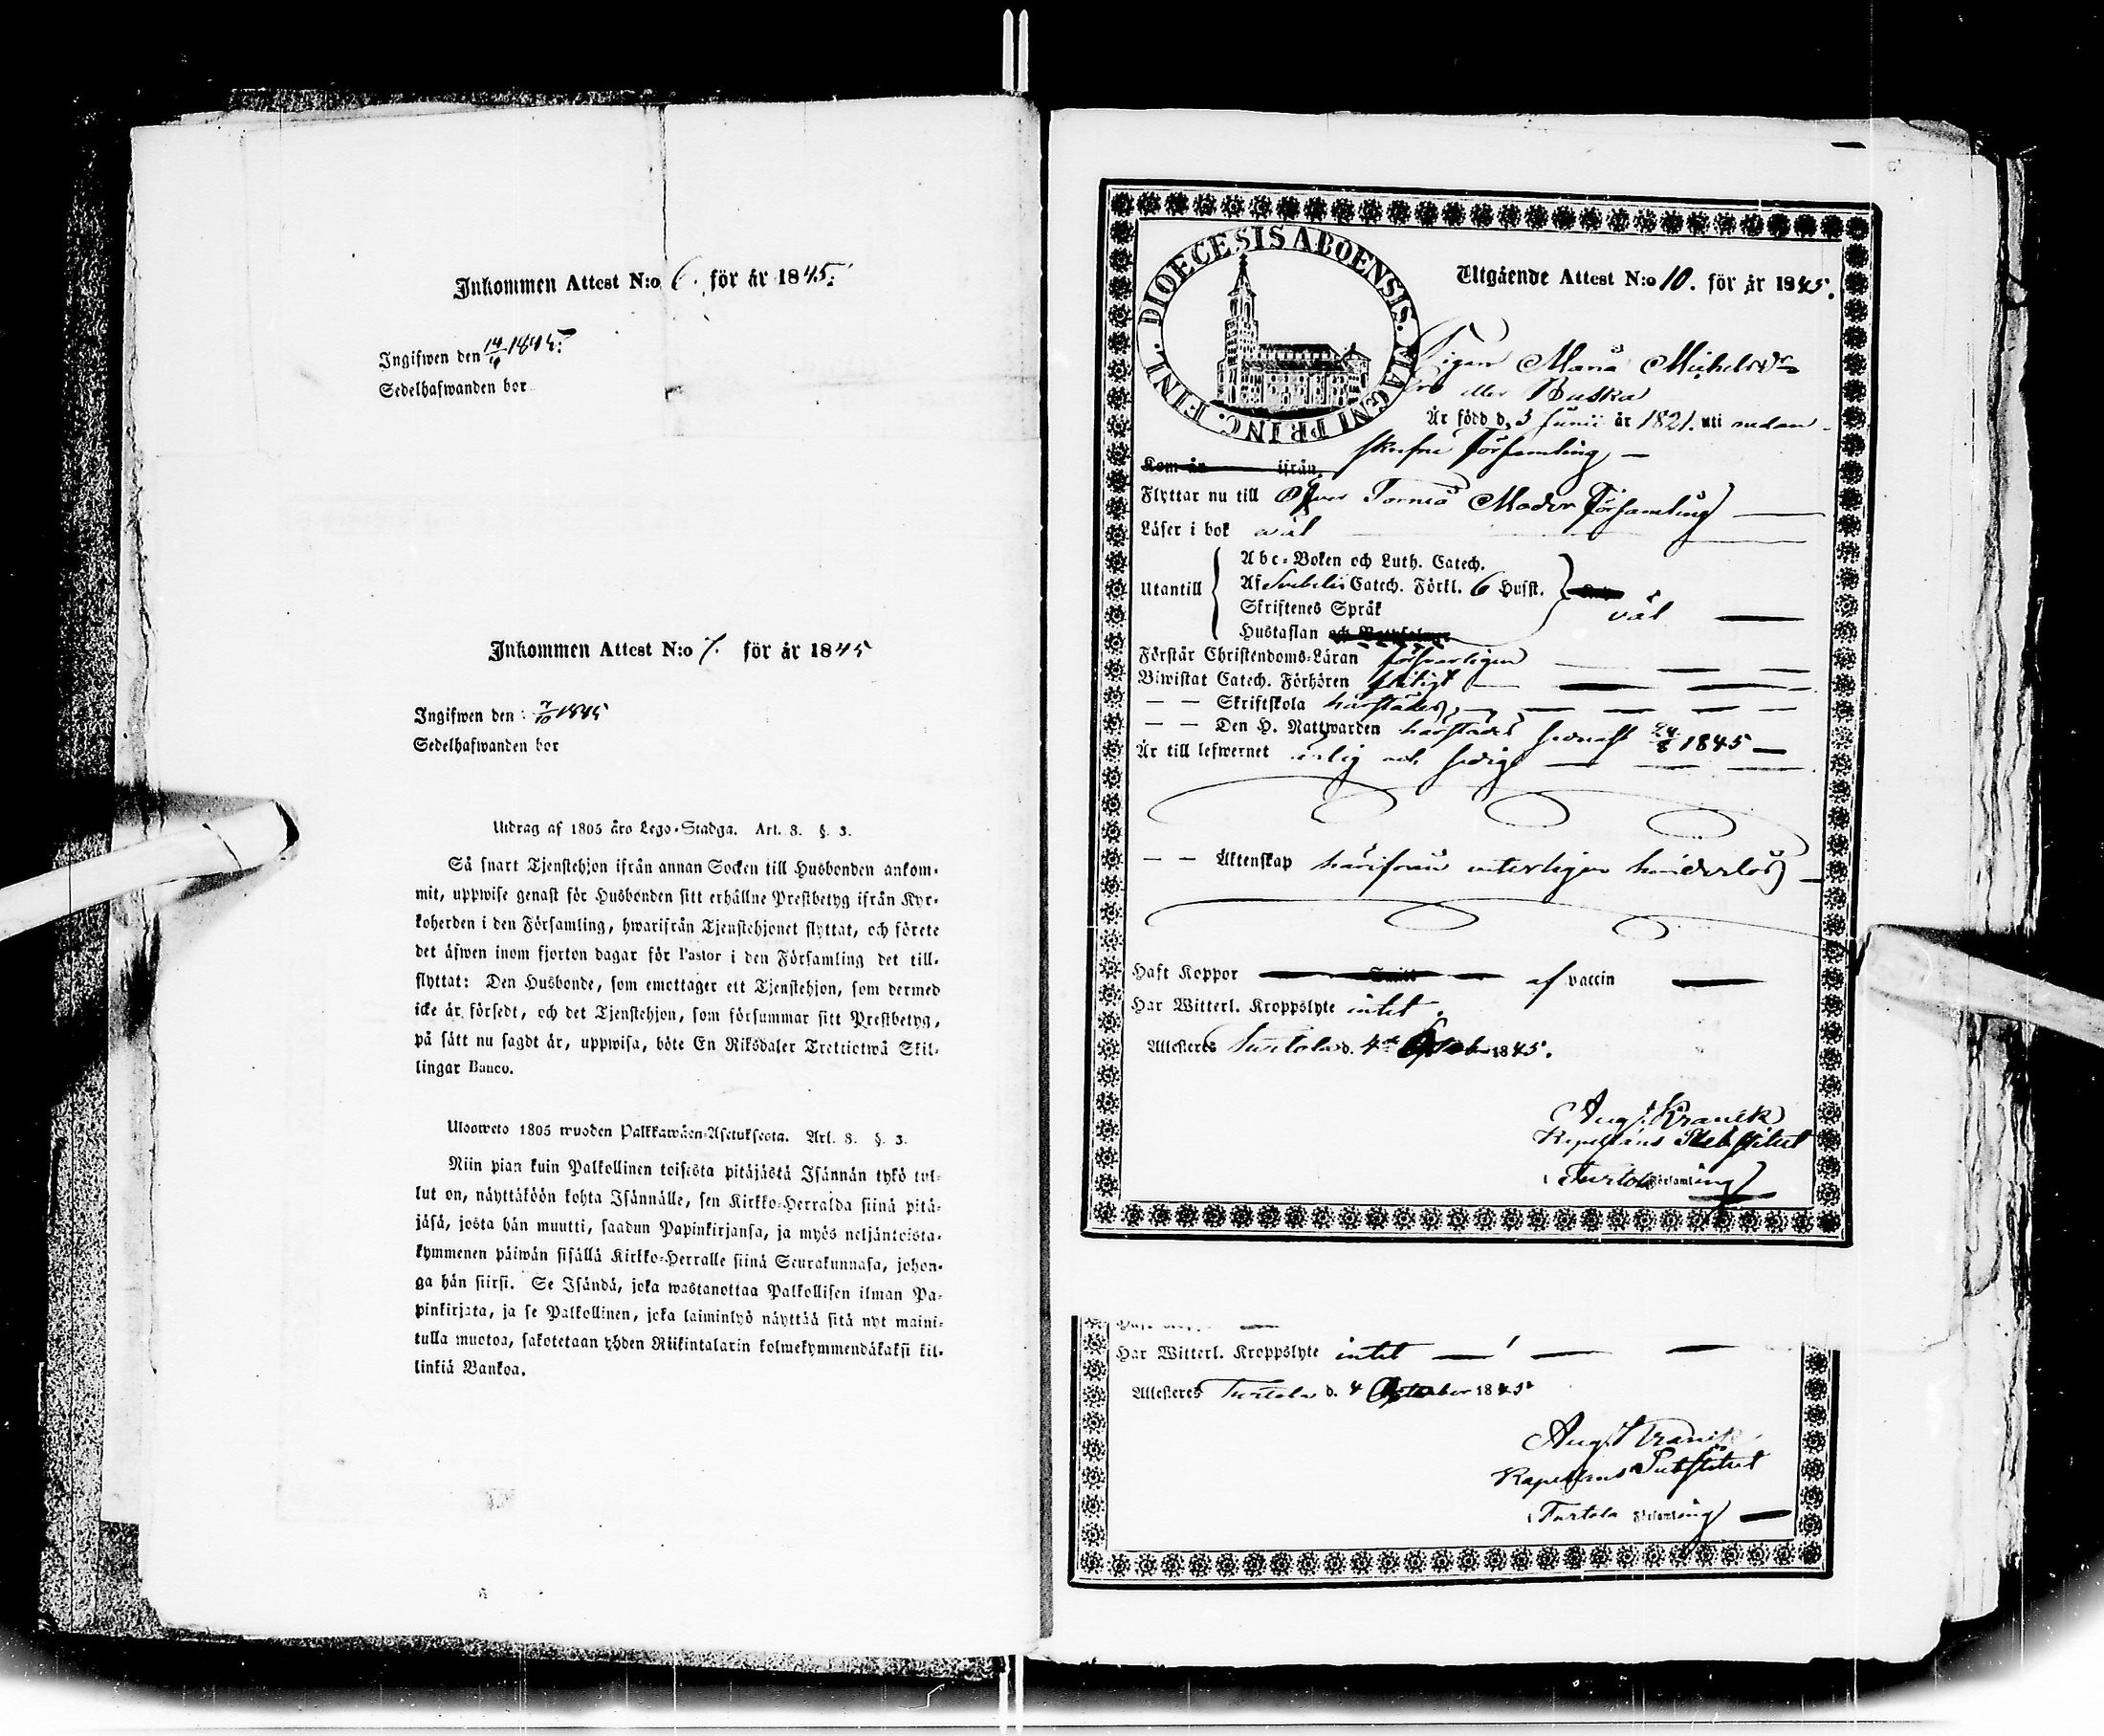 Inkommen Attest N:o 6. för år 1845.
Ingifwen den 1845.
Sedelhafwanden bor
Inkommen Attest N:o 7. för år 1845
Ingifwen den 7/10 1845
Sedelhafwanden bor
Utdrag af 1805 års Lego-Stadga. Art. 8. §. 3.
Så snart Tjenstehjon ifrån annan Socken till Husbonden ankom-
mit, uppwise genast för Husbonden sitt erhållne Prestbetyg ifrån Kyr-
koherden i den Församling, hwarifrån Tjenstehjonet flyttat, och förete
det äfwen inom fjorton dagar för Pastor i den Församling det till-
flyttat: Den Husbonde, som emottager ett Tjenstehjon, som dermed
icke är försedt, och det Tjenstehjon, som försummar sitt Prestbetyg,
på sätt nu sagdt är, uppwisa, böte En Riksdaler Trettiotwå Skil-
lingar Banco.
Ulosweto 1805 wuoden Palkkawäen-Asetuksesta. Art. 8. §. 3.
Niin pian kuin Palkollinen toisesta pitäjästä Isännän tykö tul-
lut on, näyttäköön kohta Isännälle, sen Kirkko-Herralda siinä pitä-
jäsä, josta hän muutti, saadun Papinkirjansa, ja myös neljäntoista-
kymmenen päiwän sisällä Kirkko-Herralle siinä Seurakunnasa, johon-
ga hän siirsi. Se Isändä, joka wastanottaa Palkollisen ilman Pa-
pinkirjata, ja se Palkollinen, joka laiminlyö näyttää sitä nyt maini-
tulla muotoa, sakotetaan yhden Riikintalarin kolmekymmendäkaksi kil-
linkiä Bankoa.
DIOECESIS ABOENSIS. MAGNI PRINC. FINL.
Utgående Attest N:o 10. för år 1845.
Pigan Maria Michelsdr
eller Buska
Är född d. 3 Junii år 1821. uti nedan-
skrefne Församling
Kom år ifrån
Flyttar nu till Öfver Torneå Moder Församling
Läser i bok väl
Abc-Boken och Luth. Catech.
Utantill Af Svebelii Catech. Förkl. 6 Hufst.
Skriftenes Språk väl
Hustaflan
Förstår Christendoms-Läran försvarligen
Biwistat Catech. Förhören flitigt
— — Skriftskola härstädes
— — Den H. Nattwarden härstädes senast 24/8 1845
Är till lefwernet ärlig och sedig
— — Äktenskap härifrån veterligen hinderlös
Haft Koppor af vaccin
Har Witterl. Kroppslyte intet.
Attesteras Turtola d. 4de October 1845.
Aug. Kranck
Kapellans Substitut
i Turtola Församling
Har Witterl. Kroppslyte intet
Attesteras Turtola d. 4 October 1845
Aug. Kranck
Kapellans Substitut
i Turtola Församling